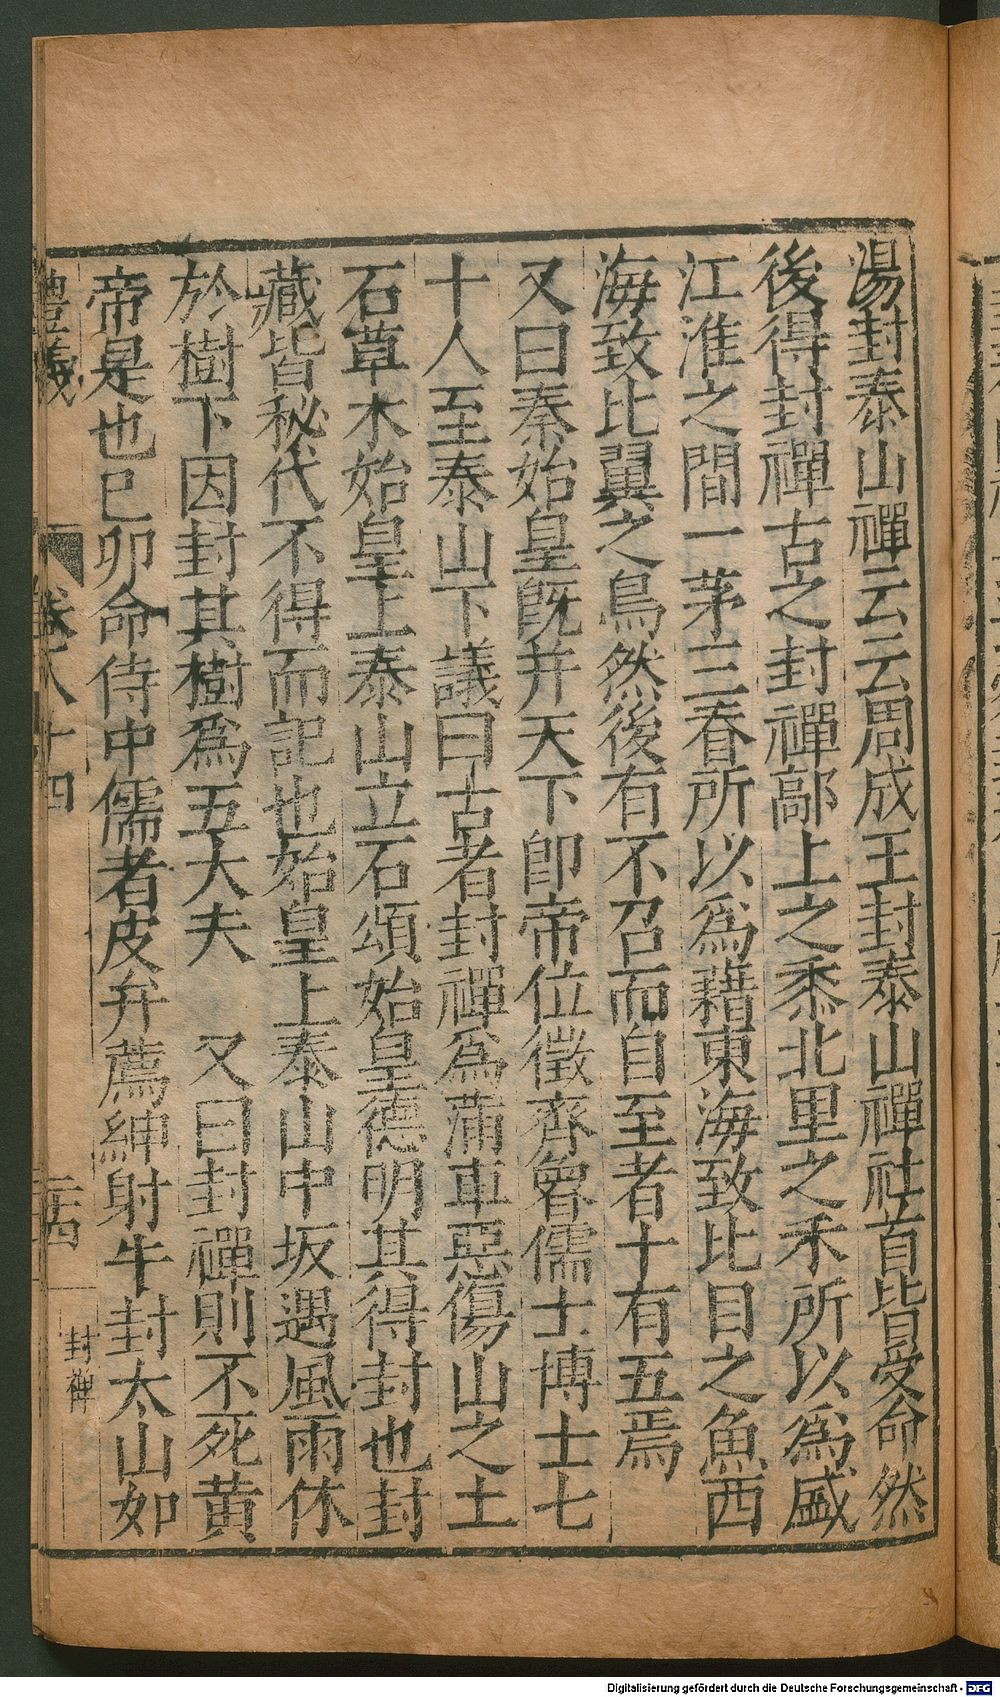 湯封泰山禪云云周成王封泰山禪社首皆受命然
後得封禪古之封禪鄗上之黍北里之禾所以爲盛
江淮之間一茅三脊所以爲藉東海致比目之魚西
海致比翼之鳥然後有不召而自至者十有五焉
又曰秦始皇既并天下卽帝位徵齊魯儒士博士七
十人至泰山下議曰古者封禪爲蒲車惡傷山之土
石草木始皇上泰山立石頌始皇德明其得封也封
藏皆秘代不得而記也始皇上泰山中坂遇風雨休
於樹下因封其樹爲五大夫　又曰封禪則不死黄
帝是也已卯命侍中儒者皮弁薦紳射牛封太山如
禮義　卷八十四　二十四　封禪
Digitalisierung gefördert durch die Deutsche Forschungsgemeinschaft - DFG